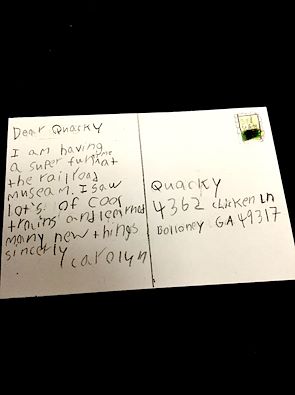 Dear Quacky
I am having
a super fun time at
the railroad
museam. I saw
lot's of cool
trains and learned
many new things
sincerly
carolyn
Quacky
4362 chicken Ln
Bolloney, GA 49317